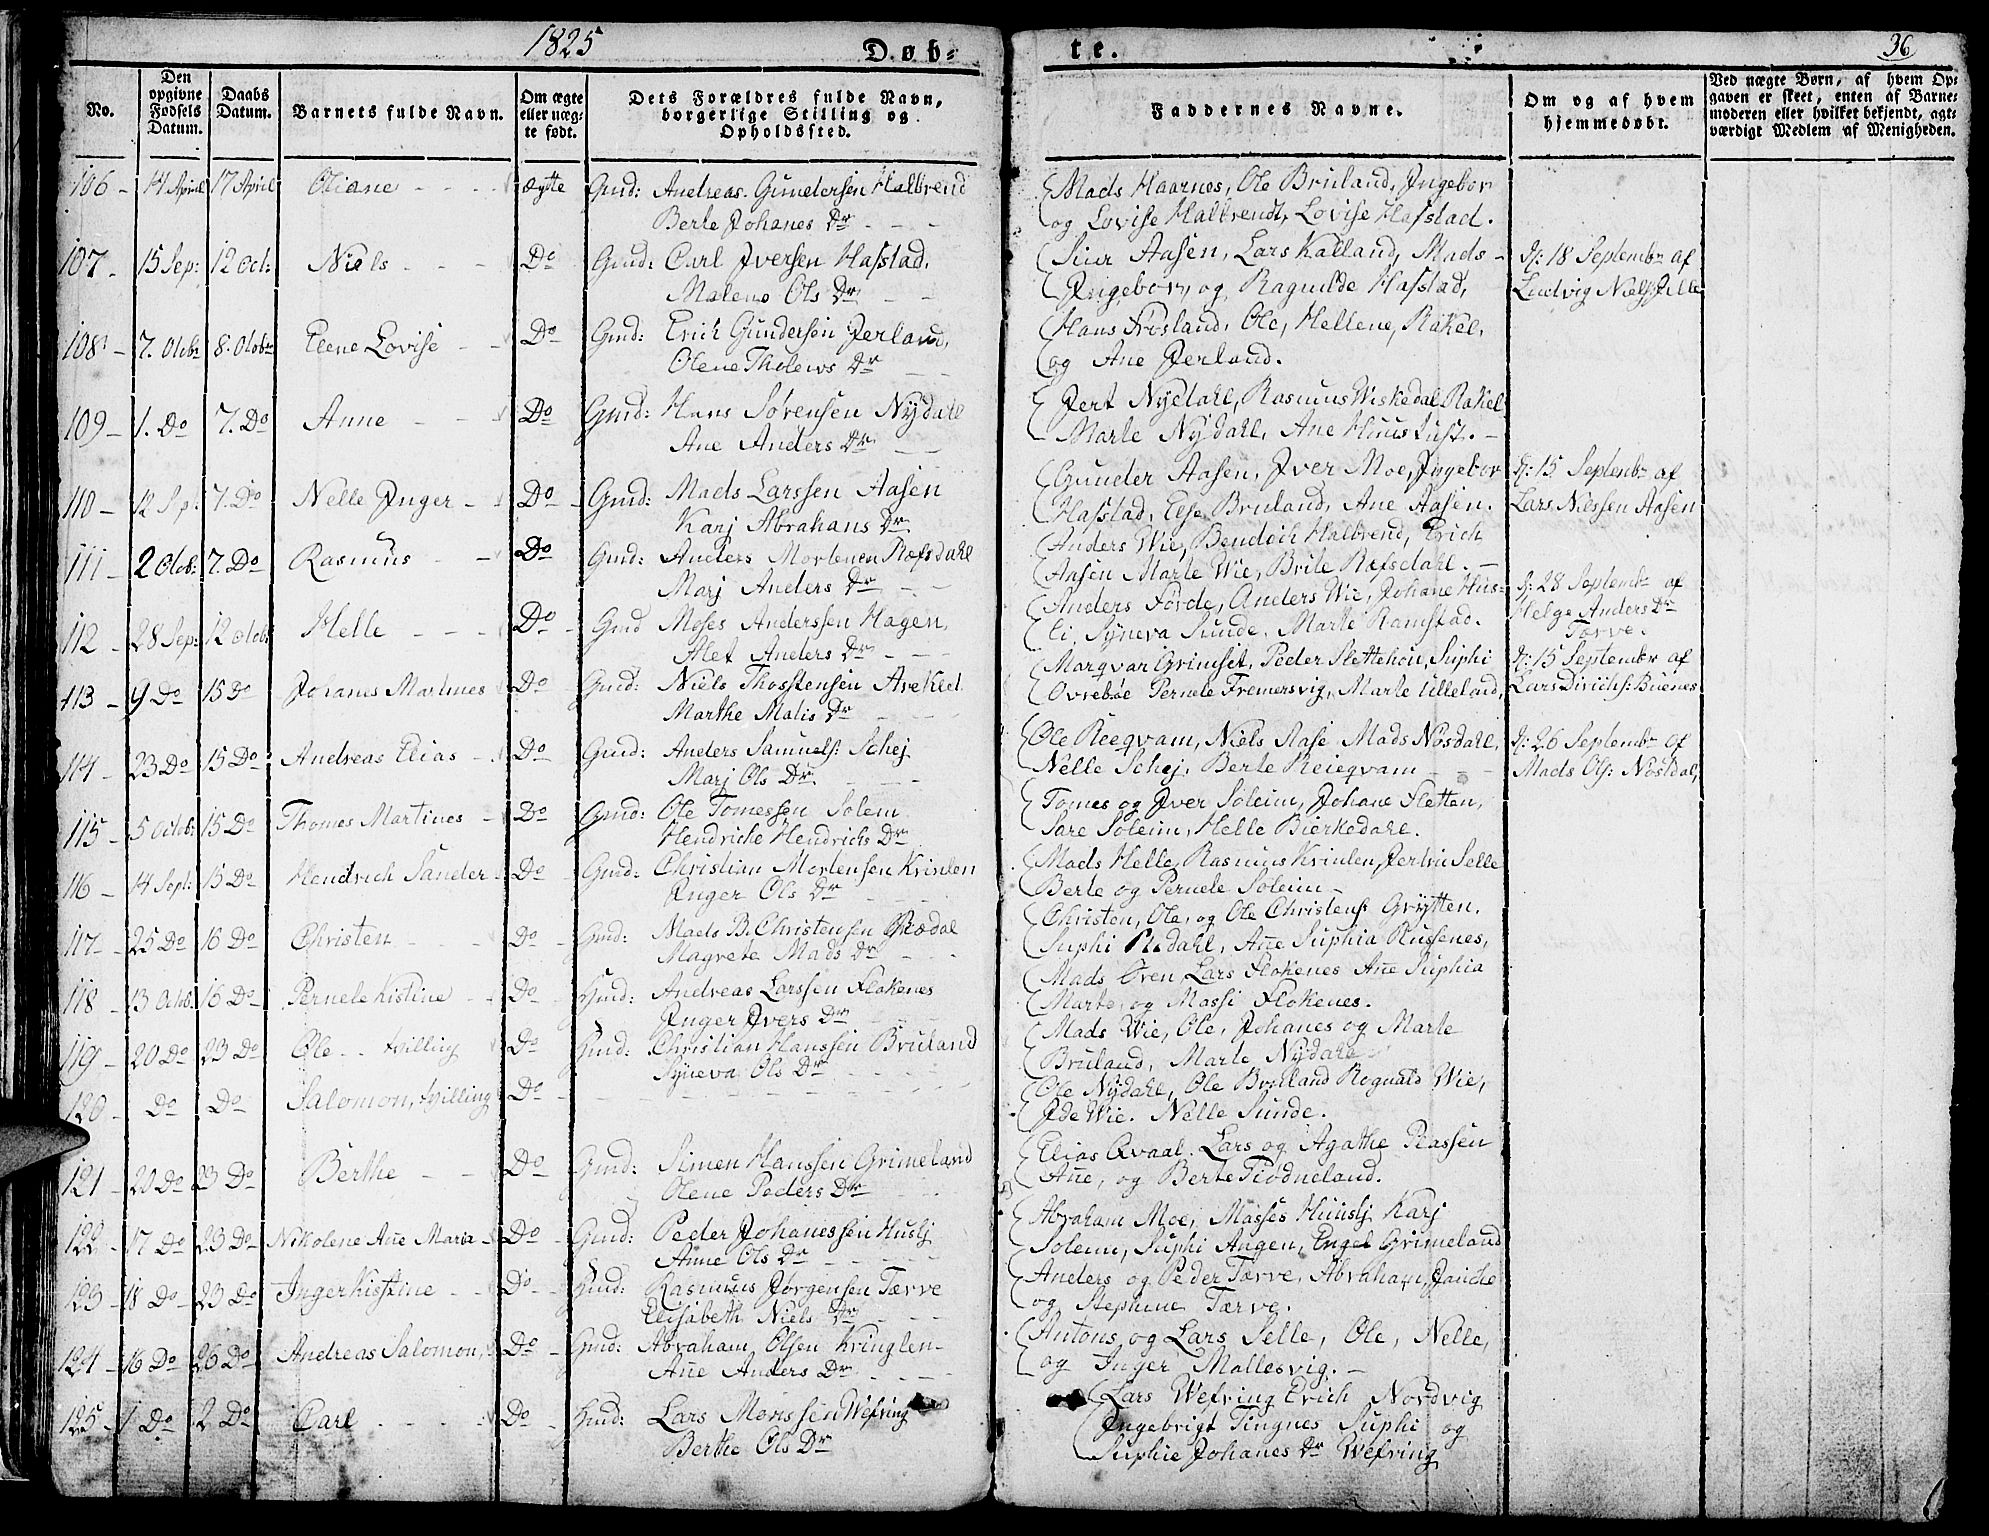 1825
Døb=
te.
36
No.
Den opgivne Fødsels Datum.
Daabs Datum.
Barnets fulde Navn.
Om ægte eller nægte født.
Dets Forældres fulde Navn, borgerlige Stilling og Opholdssted.
Faddernes Navne.
Om og af hvem hjemmedøbt.
Ved nægte Børn, af hvem Opgaven er skeet, enten af Barnemoderen eller hvilket bekjendt, agtværdigt Medlem af Menigheden.
106 - 14 April 17 April Oliane - - - ægte Gmd: Andreas Gundersen Halbrend Mads Haarnes, Ole Bruland, Ingebor
Berte Johanes Dr - - - og Lovise Halbrendt, Lovise Hafstad.
107 - 15 Sep: 12 Oct: Niels - - - Do Gmd: Carl Iversen Hafstad, Siur Aasen, Lars Kalland, Mads - Dj: 18 Septembr af
Malene Ols Dr - - Ingebor, og Ragnilde Hafstad, Ludvig Niels Jelle
108 - 7. Octbr 8. Octobr Elene Lovise - - Do Gmd: Erich Gundersen Jerland, Hans Frøsland, Ole, Hellene, Rakel,
Olene Tholews Dr - - og Ane Jerland.
109 - 1. Do 7. Do Anne - - Do Gmd: Hans Sørensen Nydahl Jert Nydahl, Rasmus Wiskedal Rakel
Ane Anders Dr - - Marte Nydahl, Ane Huus -
110 - 12 Sep: 7. Do Nelle Inger - Do - Gmd: Mads Larssen Aasen Gunder Aasen, Iver Moe, Ingebor Dj: 15 Septembr af
Karj Abrahans Dr Hafstad, Else Bruland, Ane Aasen. Lars Nilssen Aasen
111 - 2 Octb: 7. Do Rasmus - - Do Gmd: Anders Mortenen Refsdahl Anders Wie, Bendich Halbrend, Erich
Marj Anders Dr - - Aasen Marte Wie, Brite Refsdahl. -
112 - 28 Sep: 12 Octobr Helle - - - Do - Gmd Moses Anderssen Hagen, Anders Førde, Anders Wie, Johane Hus= Dj: 28 Septembr af
Alet Anders Dr - - - li, Syneva Sunde, Marte Ramstad. Helge Anders Dr
Tærve.
113 - 9 Do 15 Do Johanes Martines Do - Gmd: Niels Thostensen Areklet Marqvar Grimset, Peder Slettehon, Suphi Dj: 15 September af
Marthe Matis Dr - - - Ovrebøe Pernele Fremersvig, Marte Ulleland, Lars Dirichs: Buenes
114 - 23 Do 15 Do Andreas Elias - Do - Gmd: Anders Samuels: Schej Ole Reeqvam, Niels Aase Mads Nøsdahl, Dj: 26 Septembr af
Marj Ols Dr - - Nelle Schej, Berte Reieqvam - - Mads Ols: Nøstdal,
115 - 5 Octobr 15 Do Thomes Martines - Do Gmd: Ole Tomessen Solem Tomes og Iver Soleim, Johane Sletten,
Hendriche Hendrichs Dr Sare Soleim, Helle Bierkedahl.
116 - 14 Sept: 15 Do Hendrich Sander Do - Gmd: Christian Mortensen Krinlen Mads Helle, Rasmus Krinlen, Jertru Selle
Inger Ols Dr - - - Berte og Pernele Soleim -
117 - 25 Do 16 Do Christen - - Do - Gmd: Mads B. Christensen Rædal Christen, Ole, og Ole Christens: Grytten.
Magrete Mads Dr - - - Suphi Redahl, Ane Suphia Russenes,
118 - 13 Octob: 16 Do Pernele Kistine - Do - Gmd: Andreas Larssen Flokenes Mads Øren, Lars Flokenes Ane Suphia
Inger Ivers Dr - - - Marte, og Massi Flokenes.
119 - 20 Do 23 Do Ole - - tvilling Do - Gmd: Christian Hanssen Bruland Mads Wie, Ole, Johanes og Marte
Syneva Ols Dr - - - Bruland, Marte Nydahl
120 - Do Do Salomon, tvilling Do - - - - Ole Nydahl, Ole Bruland Rognald Wie,
Ide Wie. Nelle Sunde.
121 - 20 Do 23 Do Berthe - - Do - Gmd: Simen Hanssen Grimeland Elias Qvaal, Lars og Agathe Plassen
Olene Peders Dr - - Ane, og Berte Flodneland.
122 - 17 Do 23 Do Nikolene Ane Maria - Do - Gmd: Peder Johanessen Huslj Abraham Moe, Masses Huuslj Karj
Anne Ols Dr - - - Soleim, Suphi Angen, Engel Grimeland
123 - 18 Do - 23 Do Ingerkistine - - Do - - Gmd: Rasmus Jørgensen Tærve Anders og Peder Tærve, Abraham, Janiche
Elisabeth Niels Dr - - - og Stephine Tærve.
124 - 16 Do 26 Do Andreas Salomon, Do - Gmd: Abraham Olsen Kringlen - Antons, og Lars Selle, Ole, Nelle,
Ane Anders Dr - - - og Inger Mallesvig. -
125 - 1 Do 2 Do Carl - - - - Do - Gmd: Lars Monssen Wefring Lars Wefring Erich Nordvig
Berthe Ols Dr Ingebrigt Tingnes Suphi og
Suphie Johanes Dr Wefring